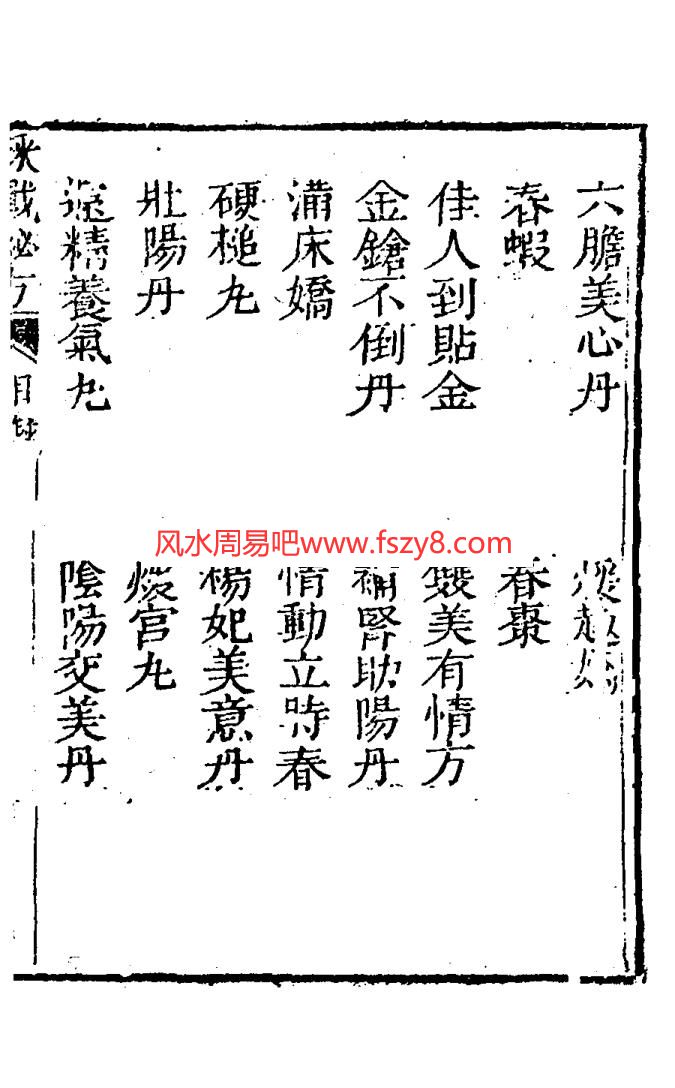 六膽美心丹
春蝦
春棗
佳人到貼金
雙美有情方
金鎗不倒丹
補腎助陽丹
滿床嬌
情動立時春
硬槌丸
楊妃美意丹
壯陽丹
煖宫丸
遂精養氣丸
陰陽交美丹
秘方
目錄
风水周易吧www.fszy8.com